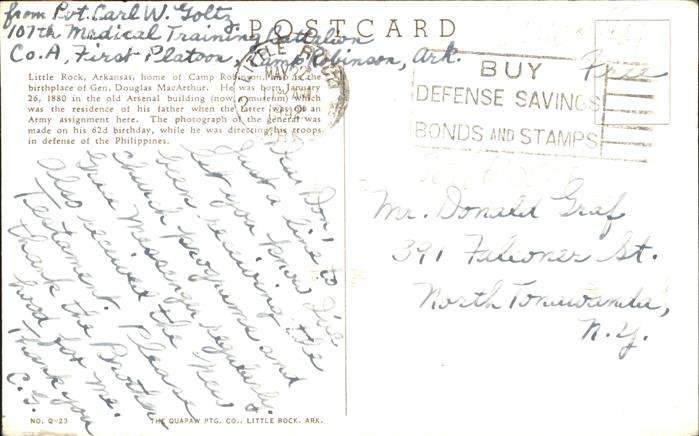 from Pvt. Carl W. Goltz
107th Medical Training Battalion
Co. A, First Platoon, Camp Robinson, Ark.
POSTCARD
Little Rock, Arkansas, home of Camp Robinson, also is the
birthplace of Gen. Douglas MacArthur. He was born January
26, 1880 in the old Arsenal building (now a museum) which
was the residence of his father when the latter was on an
Army assignment here. The photograph of the general was
made on his 62d birthday, while he was directing his troops
in defense of the Philippines.
LITTLE ROCK
MAY 22
1942
ARK.
BUY
DEFENSE SAVINGS
BONDS AND STAMPS
Free
Dear Don:
Just a line to
let you know I've
been receiving the
church programs and
Grace Messenger regularly.
Also received the New
Testament. Please
thank the Brother-
hood for me.
Thank you
C.G.
Mr. Donald Graf
391 Falconer St.
North Tonawanda,
N.Y.
NO. Q-23
THE QUAPAW PTG. CO., LITTLE ROCK, ARK.